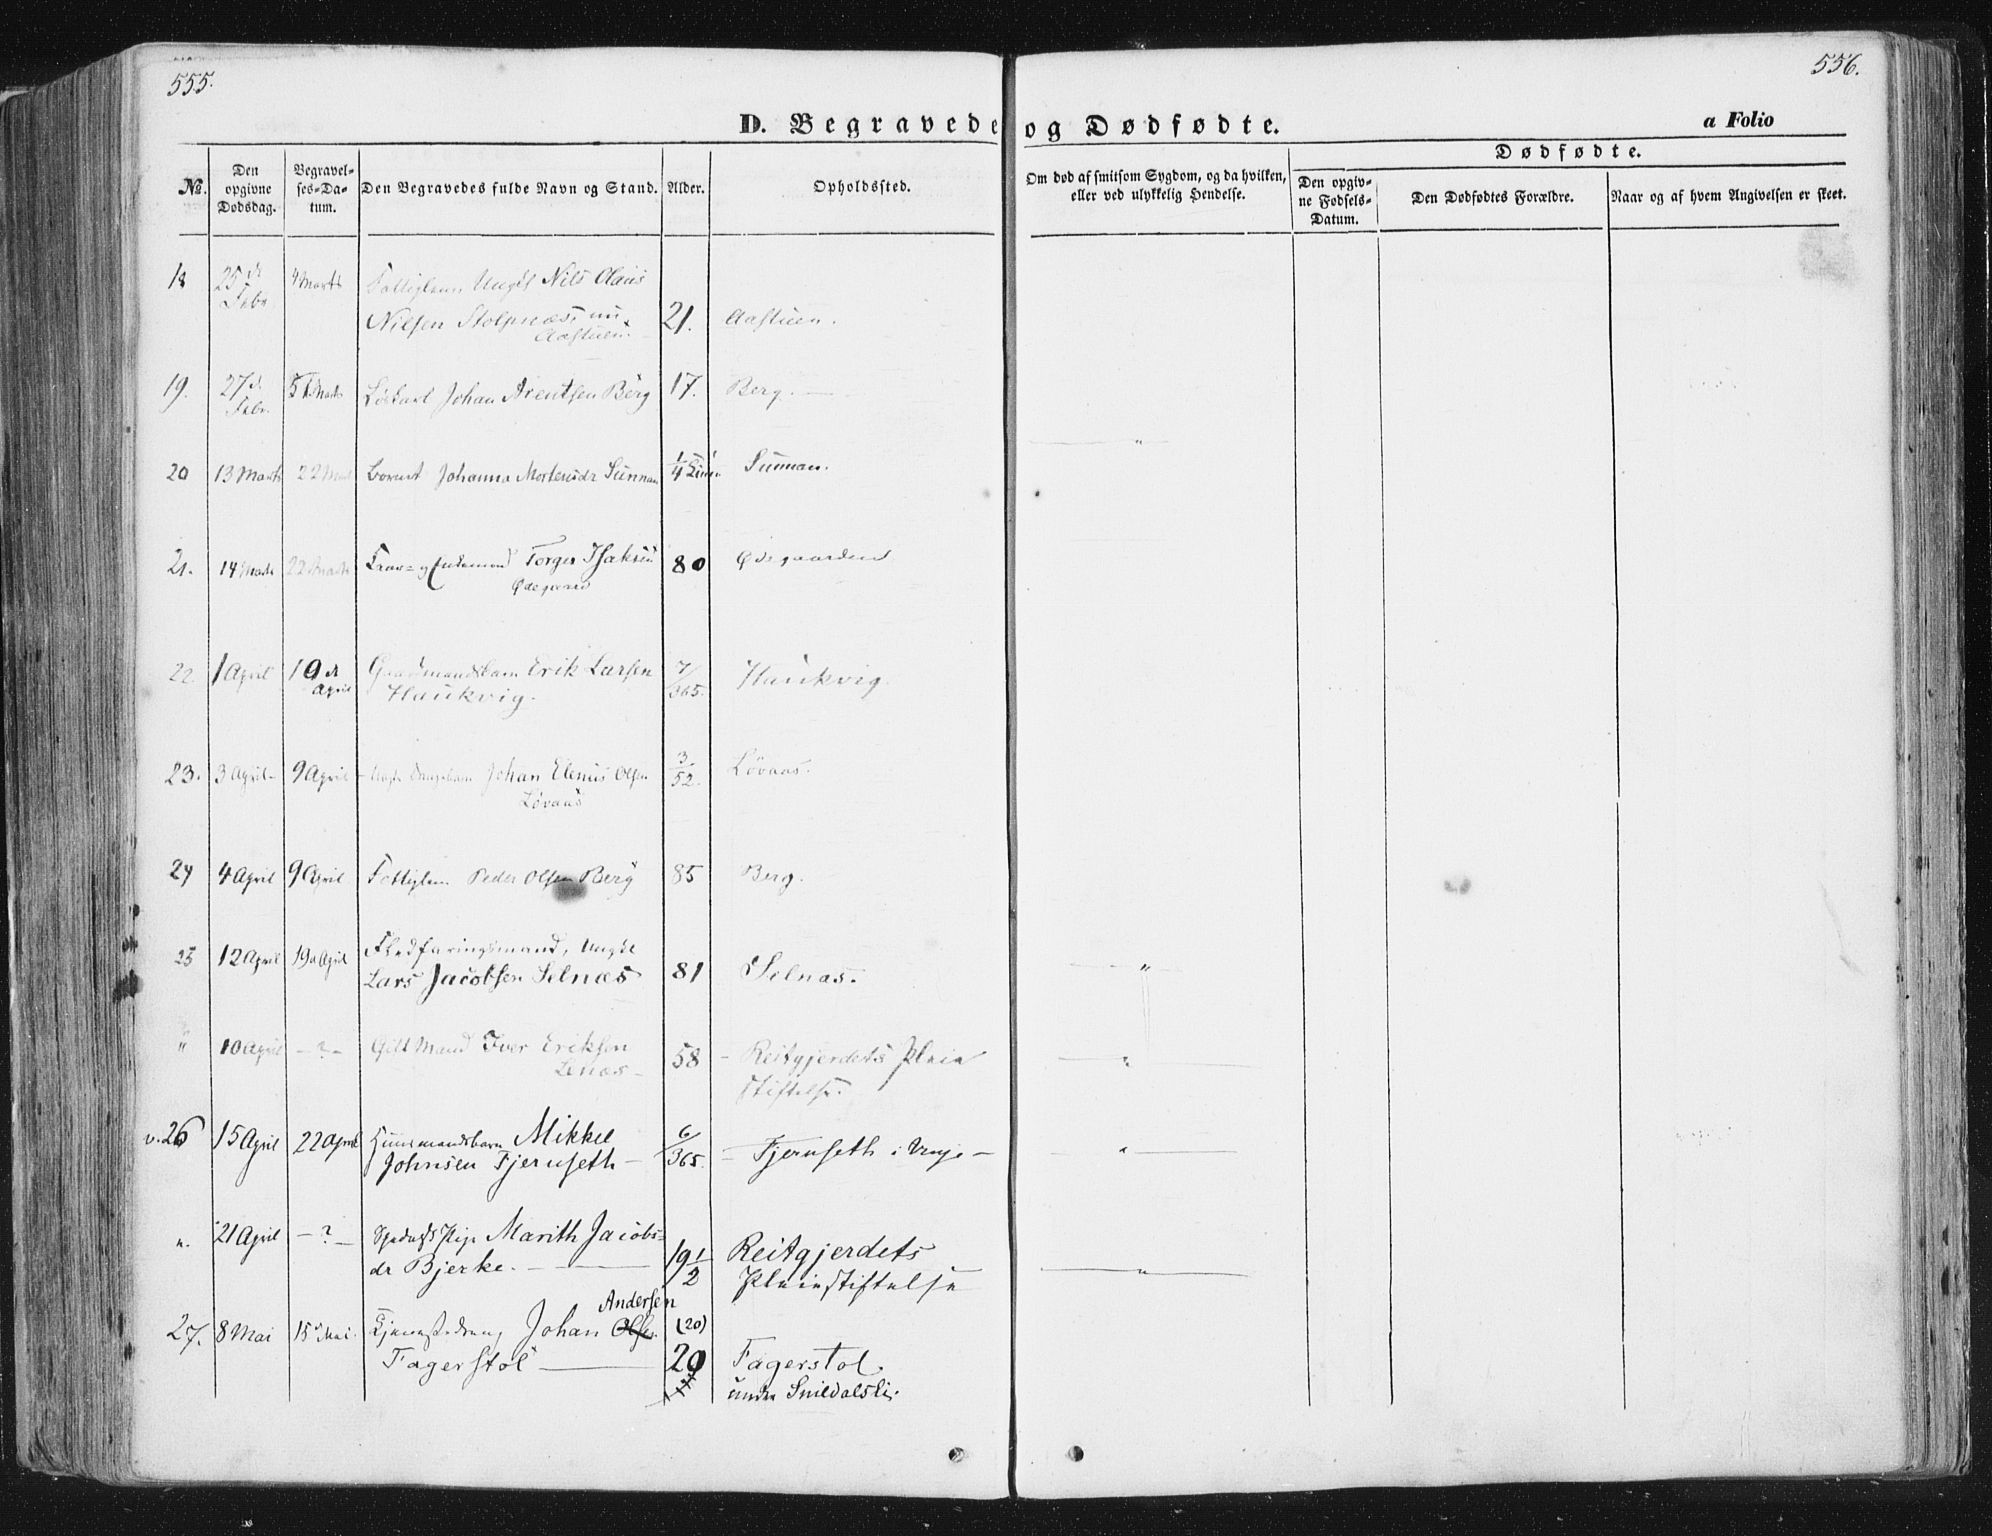 555.
556.
D. Begravede og Dødfødte.
a Folio
Dødfødte.
No.
Den opgivne Dødsdag.
Begravelses-Datum.
Den Begravedes fulde Navn og Stand.
Alder.
Opholdssted.
Om død af smitsom Sygdom, og da hvilken, eller ved ulykkelig Hendelse.
Den opgivne Fødsels-Datum.
Den Dødfødtes Forældre.
Naar og af hvem Angivelsen er skeet.
18 25 d Febr 4 Marts Fattiglem Nils Olaus
Nilsen Stolpnæs, nu 21. Aastuen.
Aastuen
19. 27 d. Febr. 5 Marts Johan Arentsen Berg 17. Berg.
20 13 Marts 22 Marts Johanna Mortensdr Sunnan 1/4 Sunnan.
21. 14 Marts 22 Marts Enkemand Torger Isaksen 80 Ødegaarden
Ødegaard
22 1 April 19 d April Gaardmandsbarn Erik Larsen 7/365. Haukvig
Haukvig.
23. 3 April 9 April Johan Elenus Olsen 3/52. Løvaas.
Løvaas
24 4 April 9 April Fattiglem Peder Olsen Berg 85 Berg.
25 12 April 19 April Fledføringsmand,
Lars Jacobsen Selnæs 81 Selnæs. "
" 10 April - ? - Gift Mand Iver Eriksen 58 Reitgjerdets Pleie
Lenæs stiftelse. "
v. 26 15 April 22 April Huusmandsbarn Mikkel 6/365. Fjernseth i Vinje "
Johnsen Fjernseth
". 21 April - ? - Spedalsk Pige Marith Jacobs-
dr Bjerke. 19 1/2 Reitgjerdets
Pleiestiftelse "
Andersen
27. 8 Mai 15 Mai Johan Olsen (20)
Fagerstol 20 Fagerstol
under Snildalsli.